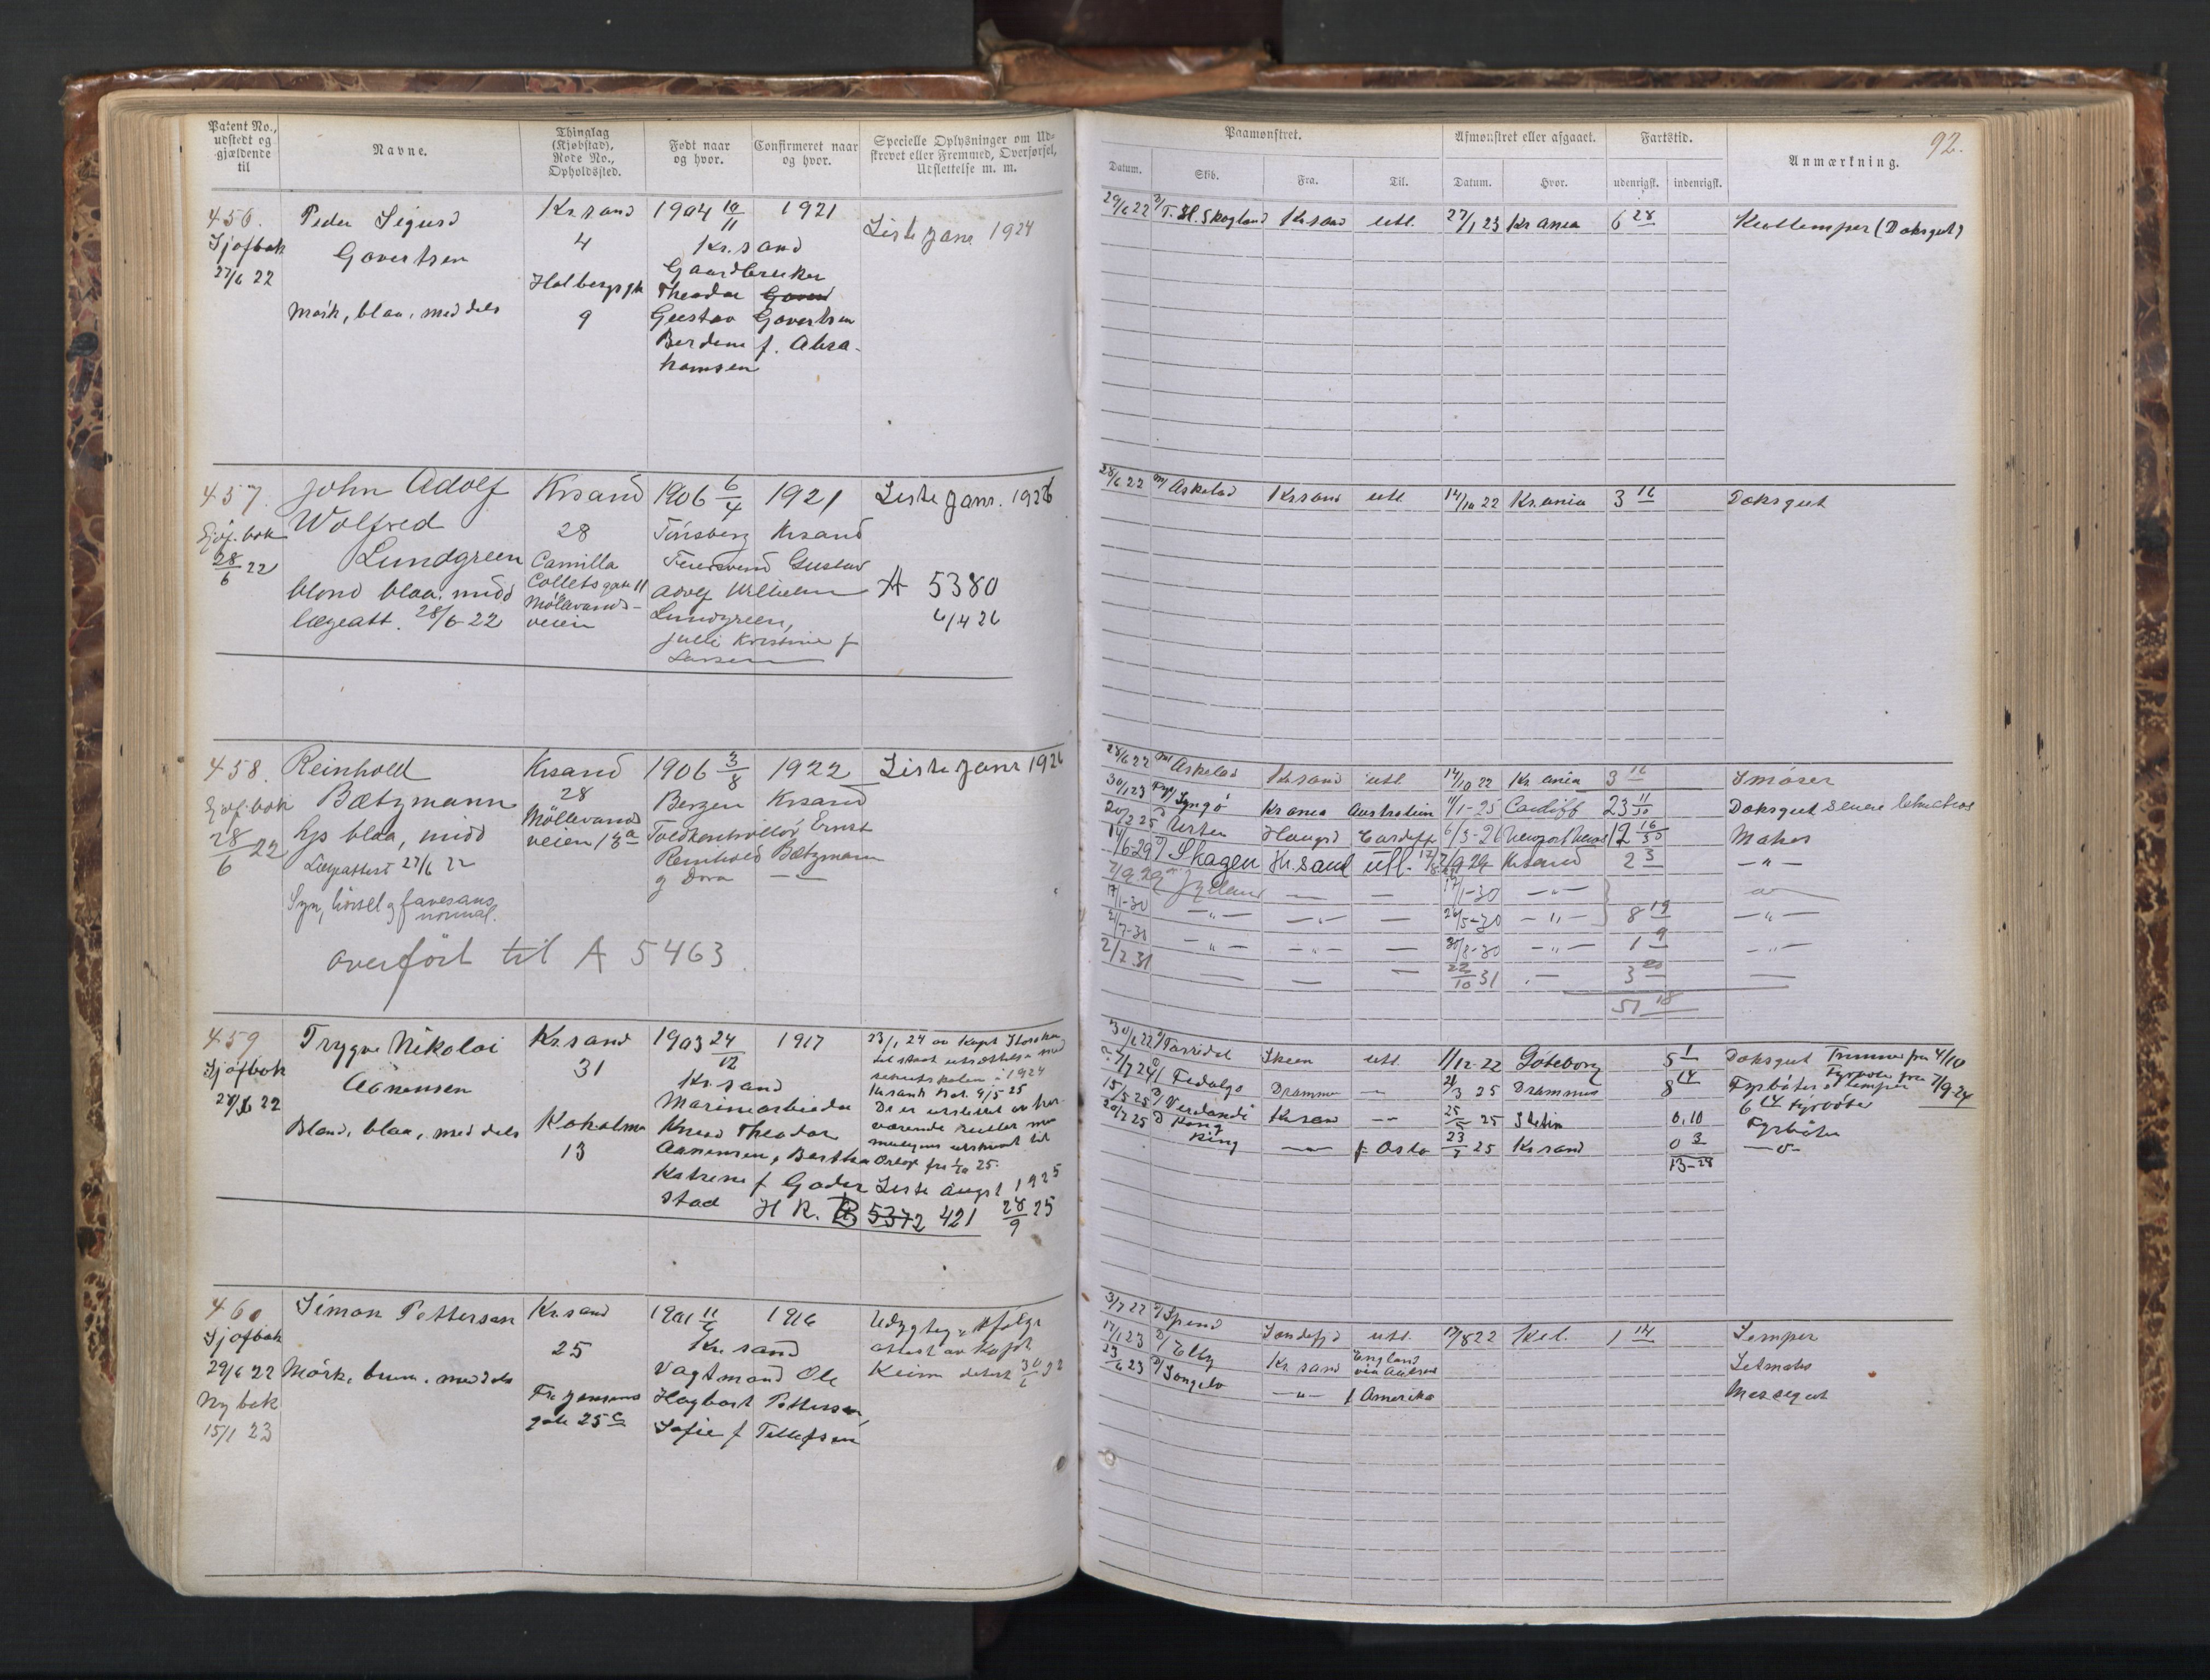 92.
Patent No., udstedt og gjældende til
Navne.
Thinglag (Kjøbstad), Rode No., Opholdssted.
Født naar og hvor.
Confirmeret naar og hvor.
Specielle Oplysninger om Udskrevet eller Fremmed, Overførsel, Udslettelse m. m.
Paamønstret.
Afmønstret eller afgaaet.
Fartstid.
Anmærkning.
Datum.
Skib.
Fra.
Til.
Datum.
Hvor.
udenrigsk.
indenrigsk.
456.
Sjøfbok
27/6 22
Peder Sigurd
Govertsen
Mørk, blaa, middels
Kr.sand
4
Holbergsgt
9
1904 10/11 1921
Kr.sand
Gaardbruker
Theodor
Gustav Govertsen
Berdine f. Abra-
hamsen
Liste Janr 1924
29/6 22 D/ T. H. Skogland Krsand utl. 27/1 23 Kr ania 6 28 Kullemper (Doksgut)
457.
Sjøf.bok
28/6 22
John Adolf
Wolfred
Lundgreen
blond blaa, midd
lægeatt. 28/6-22
Krsand
28
Camilla
Colletsgate 11
Möllevands-
veien
1906 6/4 1921
Tönsberg Krsand
Gustav
Adolf Wilhelm
Lundgreen,
Julie Kristine f
Larsen
Liste Janr. 1926
A 5380
6/4 26
28/6 22 M/ Askelad Krsand utl. 14/10 22 Kr.ania 3 16 Doksgut
458.
Sjøf.bok
28/6 22
Reinhold
Bætzmann
lys blaa, midd
Lægeattest 27/6 22
Syn, hörsel og farvesans
normal.
overført til A 5463.
Krsand
28
Möllevands
veien 13a
1906 3/8 1922
Bergen Krsand
Toldkontrollör Ernst
Reinhold Bætzmann
og Dora — —
Liste Janr 1926
28/6 22 M/ Askelad Krsand utl. 14/10 22 Kr.ania 3 16 Smører
30/1 23 Lyngö Kr ania Australien 11/1-25 Cardiff 23 11/30 Doksgut senere letmatros
20/2 25 D/ Haugsd Cardiff 6/3-26 12 16/30 Matros
14/6-29 D/ Skagen Kr.sand utl. 7/9 29 Krsand 2 3 — " —
7/9.29 Jylland — — 17/1-30 — " —
17/1-30 — " — — " — — 26/5-30 — " — 8 19 — " —
2/7-30 — " — — " — — 30/8-30 — " — 1 9 — " —
2/7 31 — — — 22/10 31 — 3 20 —
51 18
459
Sjøfbok
28/6 22
Trygve Nikolai
Aanensen
Blond, blaa, middels
Kr.sand
31
Kokolmen
13
1903 24/12 1917
Kr.sand
Marinearbeider
Knud Theodor
Aanensen, Bertha
Katrine f Goder
stad
23/1 24 av Kapt
1924
Krsands Bat. 9/5 25
Liste August 1925
H R. B 5372 421 28/9 25
30/6 22 D/ Torridal Skien utl 1/12-22 Göteborg 5 1 Doksgut Trimmer fra 4/10
7/7 24 D/ Fidalgo Drammen — 21/3 25 Drammen 8 14 Fyrbøter o lemper
15/5 25 D/ Verdandi Krsand — 25/5 25 Stetin 0,10 Fyrbøter
20/7 25 D Kong
Ring — " — f Oslo 23/7 25 Krsand 0 3 — o —
13-28
460
Sjøfbok
29/6 22
Ny bok
15/1 23
Simon Pettersen
Mörk, brun, middels
Kr.sand
25
Fr. Jensens
gate 25c
1901 11/6 1916
Kr. sand
Vagtmand Ole
Hagbart Pettersen,
Sofie f Tellefsen
Udygtig ifølge
attest av Kapt
Keim datert 30/6 22
3/7 22 D/ Spind Sandefjd utl. 17/8 22 Kiel. 1 14 Lemper
17/1 23 D/ Elly Kr sand England Letmatr
23/6 23 D/ Songelv — " — f Amerika Messegut